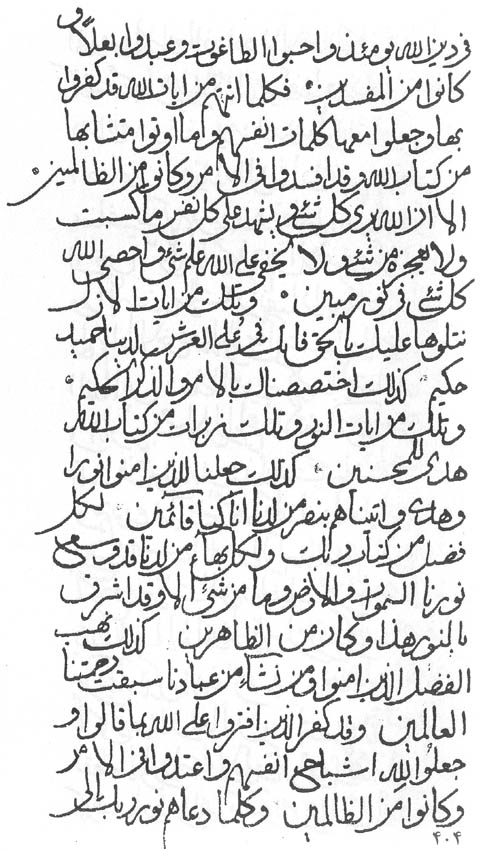 في دين الله يومئذ واحبوا الطاغوت وعبدوا بعلا و
كانوا من المفسدين فكلما اتيهم من ايات الله قد كفروا
بها وجعلوا معها كلمات انفسهم واما اوتوا متشابها
من كتاب الله وقد افسدوا في الامر وكانوا من الظالمين
الا ان الله يرى كل شئ ويشهد على كل نفس ما كسبت
ولا يعجزه من شئ ولا يخفى على الله علم شئ واحصى الله
كل شئ في نور مبين وتلك من ايات الازل
نتلوها عليك بالحق فانك في على العرش لدينا حميد
حكيم كذلك اختصصناك بالامر والذكر الحكيم
وتلك من ايات النور وتلك زبرات من كتاب الله
هدى للمحسنين كذلك جعلنا للذين امنوا نورا
وهدى واتيناهم بنصر من لدنا انا كنا قائمين لكل
فصل من كتاب ربك ولكل بهاء من لدنا قد وسع
نورنا السموات والارض وما من شئ الا وقد اشرق
بالنور هذا وكان من الظاهرين كذلك نهب
الفضل الذين امنوا ومن نشاء من عبادنا سبقت رحمتنا
العالمين وقد كفر الذين افتروا على الله بما قالوا و
جعلوا الله اشباح انفسهم واعتدوا في الامر
وكانوا من الظالمين وكلما دعاهم نور ربك الى
۴۰۴